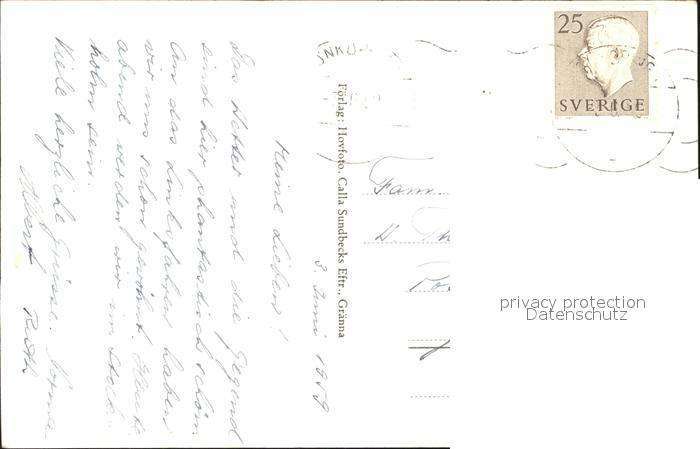 3. Juni 1959
Meine Lieben!
Das Wetter und die Gegend
sind hier phantastisch schön.
An das Linksfahren haben
wir uns schon gewöhnt. Heute
abend werden wir in Stock-
holm sein.
Viele herzliche Grüsse.
Ruth
Förlag: Hovfoto, Calla Sundbecks Eftr., Gränna
25
SVERIGE
Fam.
privacy protection
Datenschutz